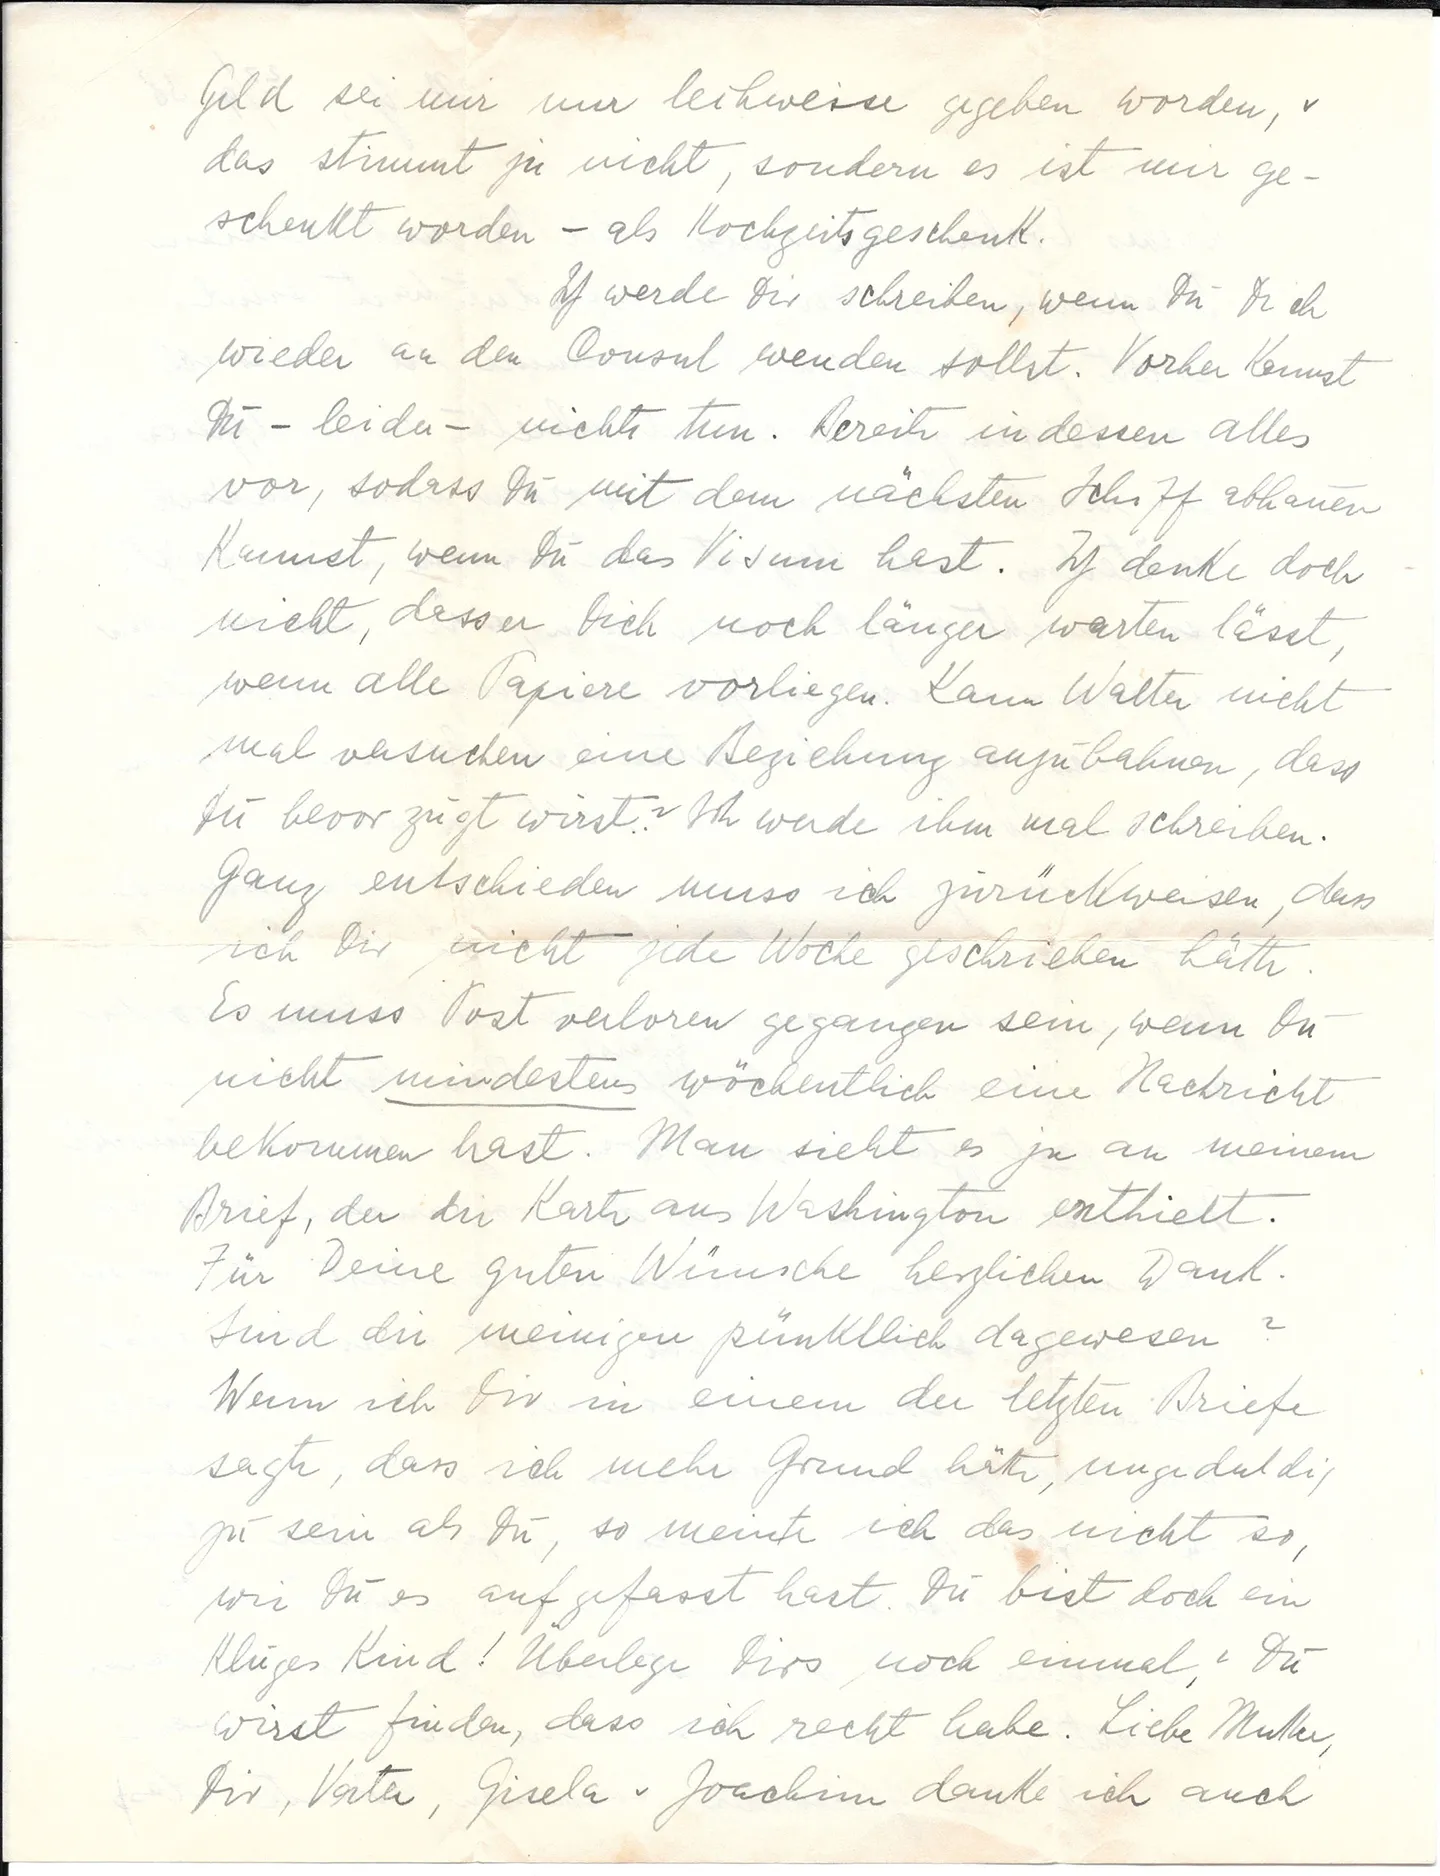 Geld sei mir nur leihweise gegeben worden, u
das stimmt ja nicht, sondern es ist mir ge-
schenkt worden - als Hochzeitsgeschenk.
Ich werde Dir schreiben, wenn Du Dich
wieder an den Consul wenden sollst. Vorher kannst
Du - leider - nichts tun. Bereite indessen alles
vor, sodass Du mit dem nächsten Schiff abhauen
kannst, wenn Du das Visum hast. Ich denke doch
nicht, dass er Dich noch länger warten lässt,
wenn alle Papiere vorliegen. Kann Walter nicht
mal versuchen eine Beziehung anzubahnen, dass
Du bevorzugt wirst? Ich werde ihm mal schreiben.
Ganz entschieden muss ich zurückweisen, dass
ich Dir nicht jede Woche geschrieben hätte.
Es muss Post verloren gegangen sein, wenn Du
nicht mindestens wöchentlich eine Nachricht
bekommen hast. Man sieht es ja an meinem
Brief, der die Karte aus Washington enthielt.
Für Deine guten Wünsche herzlichen Dank.
Sind die meinigen pünktlich dagewesen?
Wenn ich Dir in einem der letzten Briefe
sagte, dass ich mehr Grund hätte, ungeduldig
zu sein als Du, so meinte ich das nicht so,
wie Du es aufgefasst hast. Du bist doch ein
kluges Kind! Überlege Dirs noch einmal, u Du
wirst finden, dass ich recht habe. Liebe Mutter,
Dir, Vater, Gisela u Joachim danke ich auch